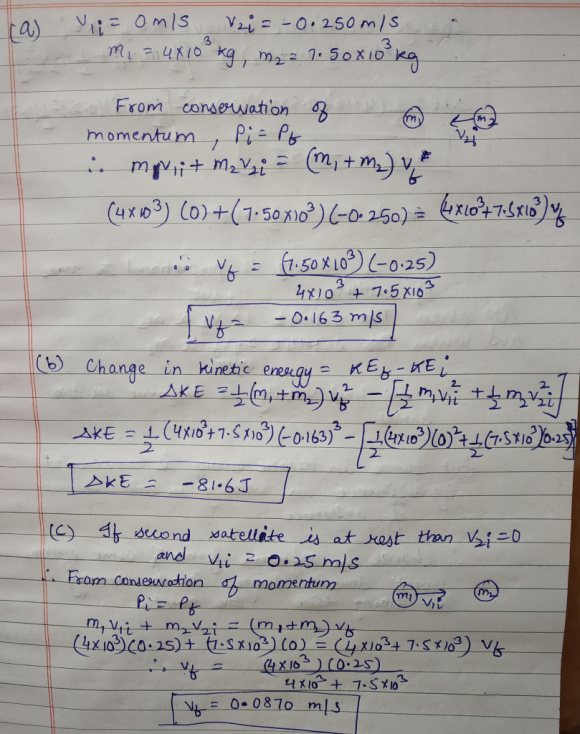 (a) V₁i = 0 m/s V₂i = -0.250 m/s
m₁ = 4×10³ kg, m₂ = 7.50×10³ kg
From conservation of
momentum, Pi = Pf
m₁ m₂
V₂i
∴ m₁v₁i + m₂v₂i = (m₁+m₂) vf
(4×10³) (0) + (7.50×10³) (-0.250) = (4×10³+7.5×10³) vf
∴ vf = (7.50×10³) (-0.25)
4×10³ + 7.5×10³
Vf = -0.163 m/s
(b) Change in kinetic energy = KEf - KEi
ΔKE = 1/2 (m₁+m₂) vf² - [1/2 m₁v₁i² + 1/2 m₂v₂i²]
ΔKE = 1/2 (4×10³+7.5×10³) (-0.163)² - [1/2 (4×10³) (0)² + 1/2 (7.5×10³) (0.25)²]
ΔKE = -81.6 J
(c) If second satellite is at rest than V₂i = 0
and V₁i = 0.25 m/s
∴ From conservation of momentum
Pi = Pf
m₁ V₁i m₂
m₁v₁i + m₂v₂i = (m₁+m₂) vf
(4×10³) (0.25) + (7.5×10³) (0) = (4×10³ + 7.5×10³) vf
∴ vf = (4×10³) (0.25)
4×10³ + 7.5×10³
Vf = 0.0870 m/s